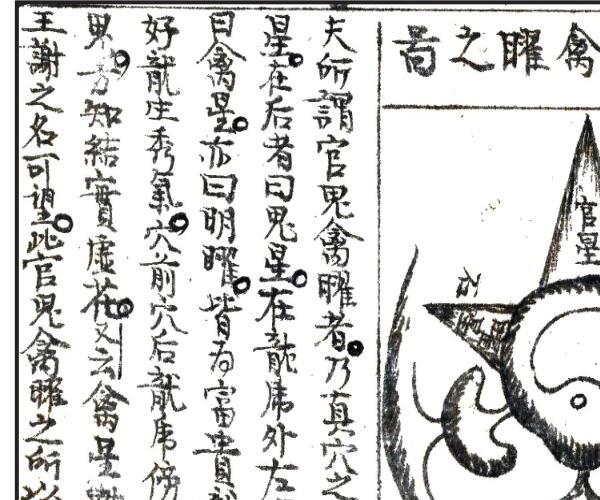 禽曜之啚
官星
右
夫所謂官鬼禽曜者乃真穴之
星在后者曰鬼星在龍虎外左
曰禽星亦曰明曜皆為富貴
好龍生秀氣穴前穴后龍虎傍
界方知結實虛花又云禽星
王謝之名可望此官鬼禽曜之所以